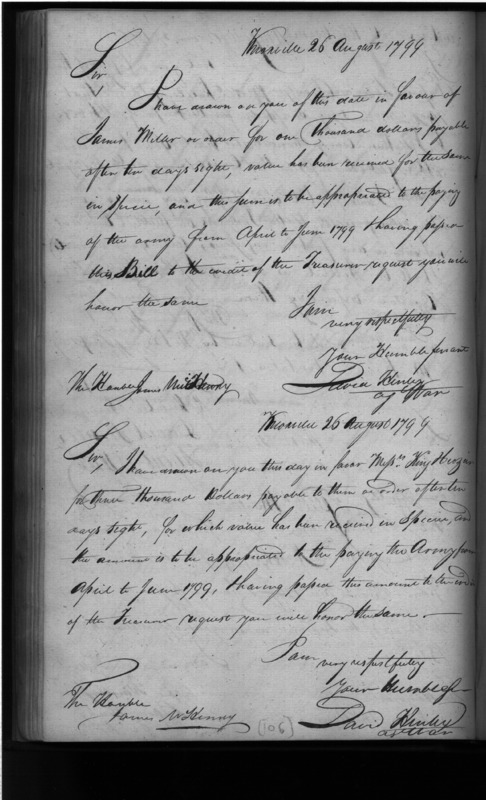 Knoxville 26 August 1799
Sir
I have drawn on you of this date in favour of
James Miller or order for one Thousand dollars payable
after ten days sight, value has been received for the same
in Specie, and the sum is to be appropriated to the paying
of the army from April to June 1799 & having passed
this Bill to the credit of the Treasurer request you will
honor the same
I am
very respectfully
your Humble servant
The Honble James McHenry
David Henley
ag War
Knoxville 26 August 1799
Sir, I have drawn on you this day in favor Messrs. King &
for three thousand dollars payable to them or order after ten
days sight, for which value has been received in Specie, and
the amount is to be appropriated to the paying the Army from
April to June 1799, & having passed this amount to the
of the Treasurer request you will honor the same.
I am
very respectfully
your Humble
The Honble
James McHenry
David Henley
ag War
[106]